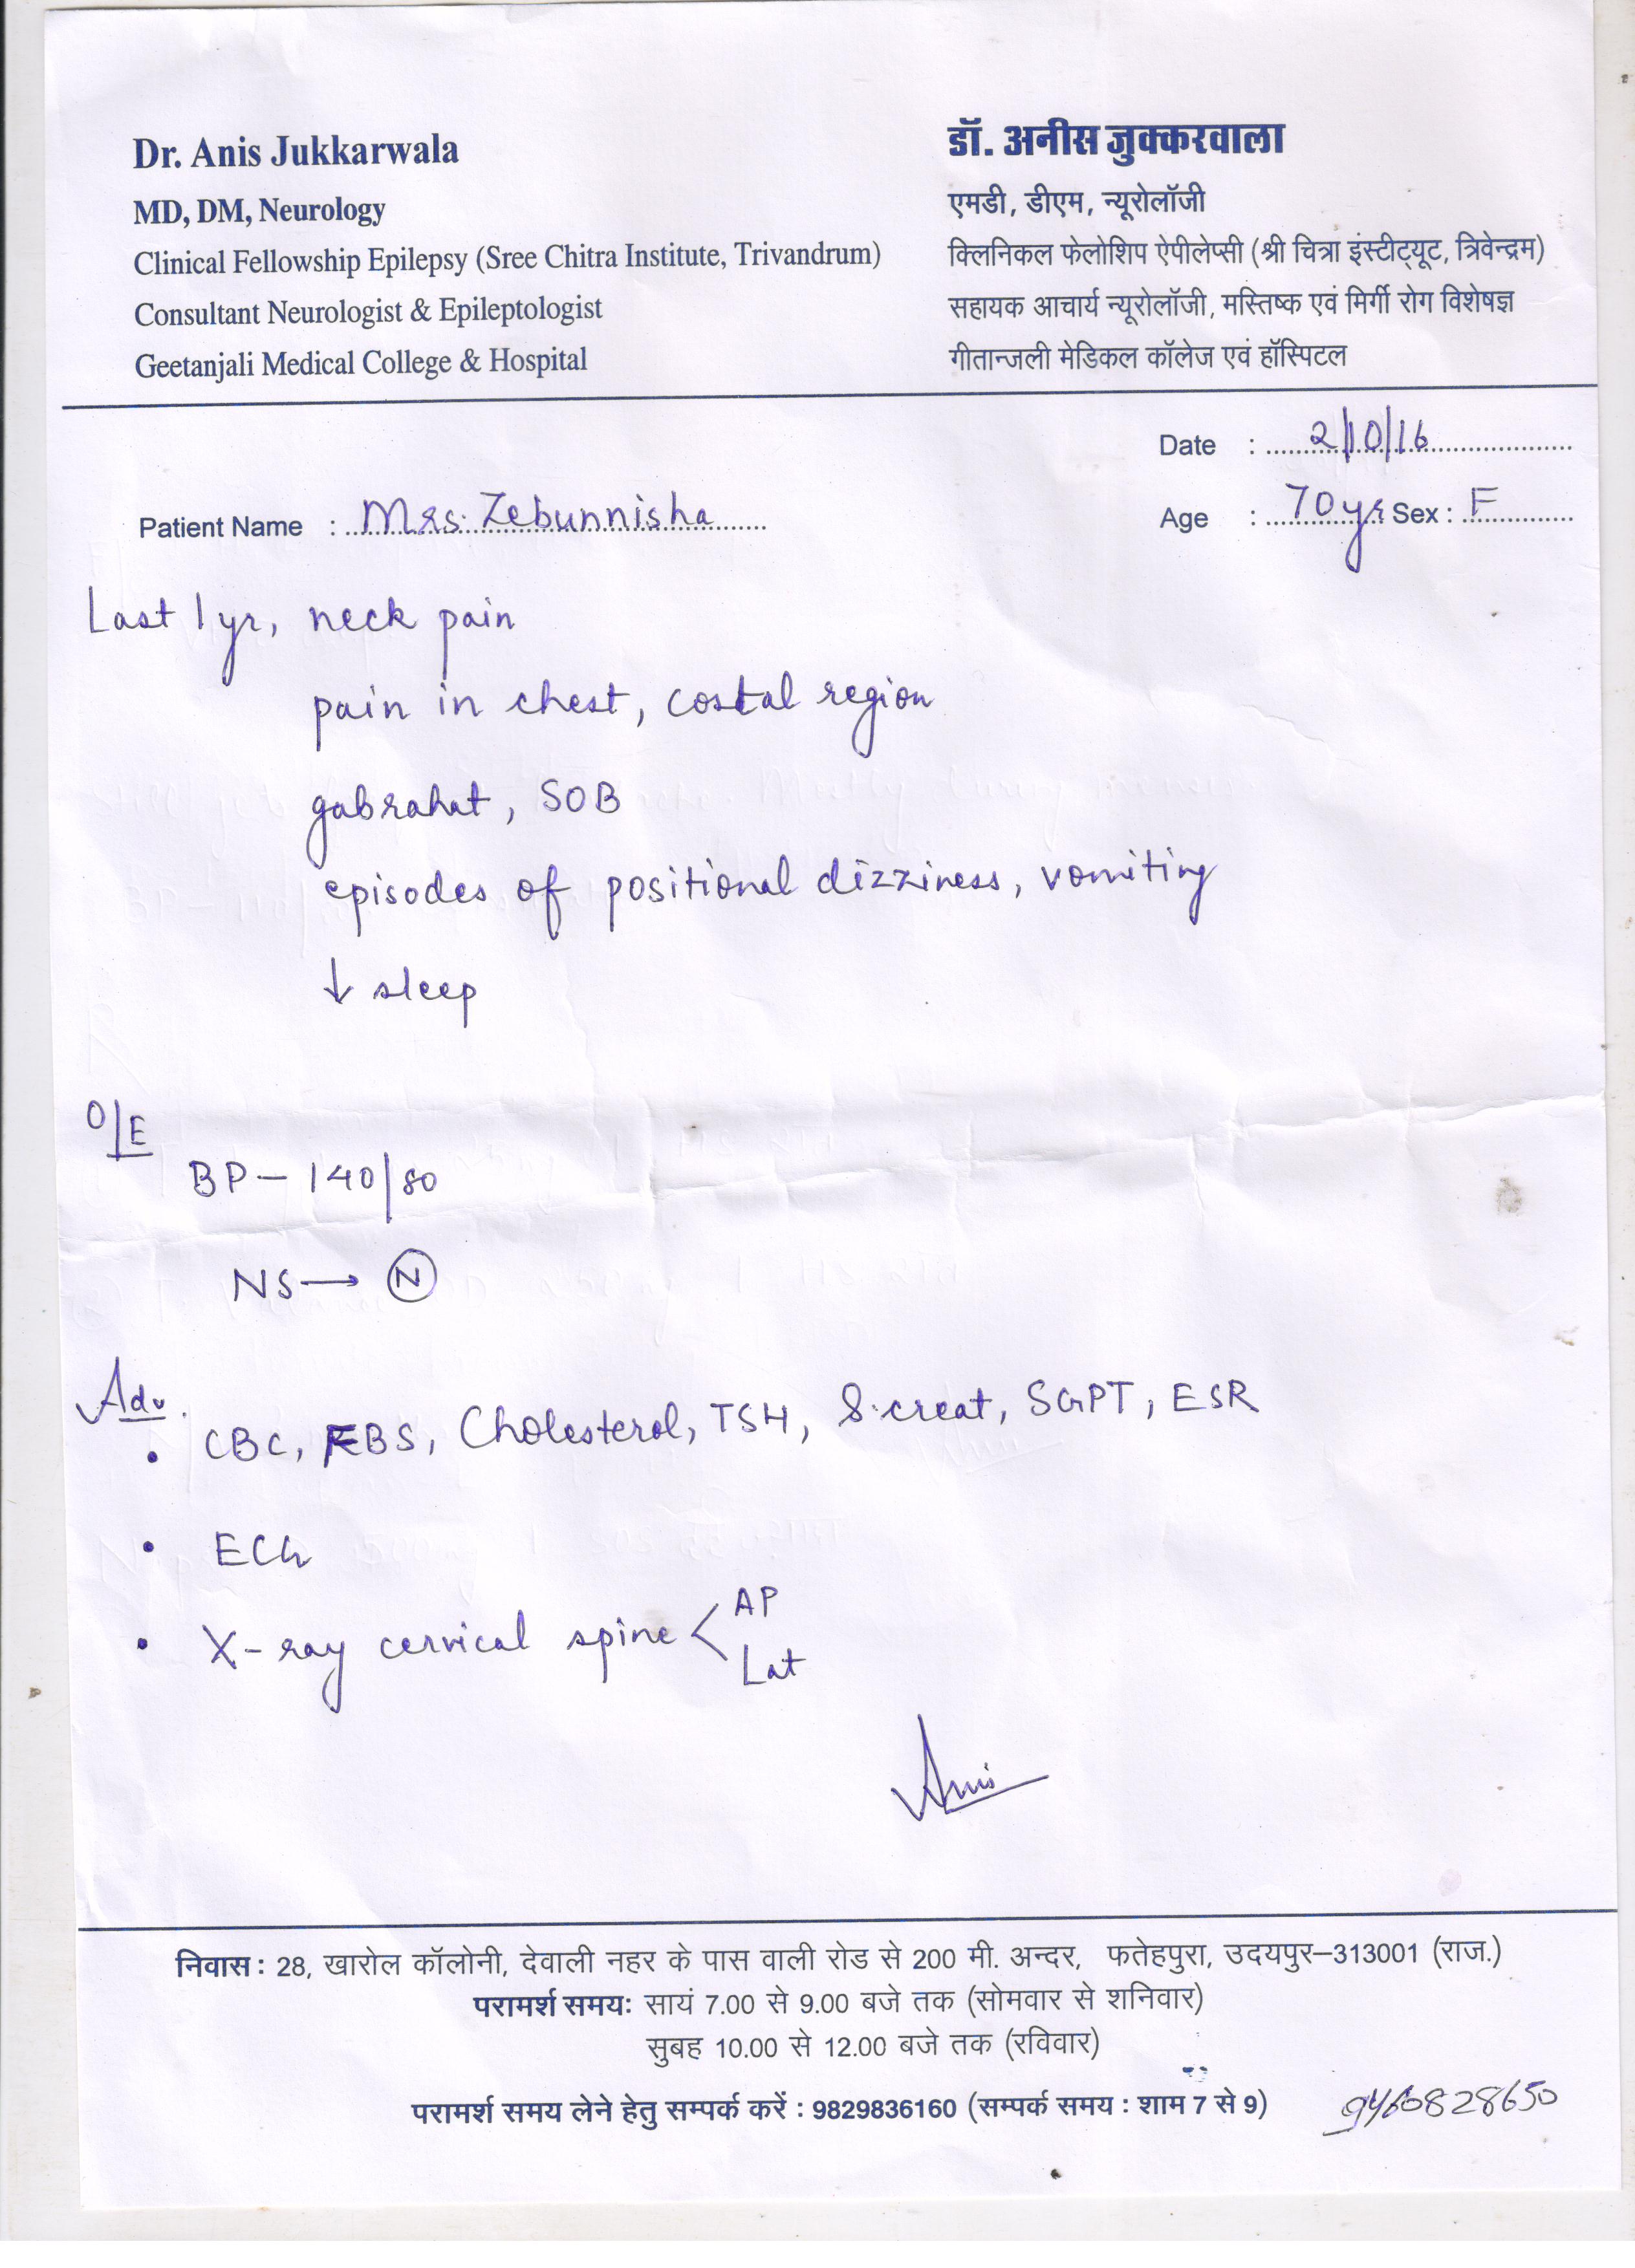 Dr. Anis Jukkarwala
MD, DM, Neurology
Clinical Fellowship Epilepsy (Sree Chitra Institute, Trivandrum)
Consultant Neurologist & Epileptologist
Geetanjali Medical College & Hospital
डॉ. अनीस जुक्करवाला
एमडी, डीएम, न्यूरोलॉजी
क्लिनिकल फेलोशिप ऐपीलेप्सी (श्री चित्रा इंस्टीट्यूट, त्रिवेन्द्रम)
सहायक आचार्य न्यूरोलॉजी, मस्तिष्क एवं मिर्गी रोग विशेषज्ञ
गीतान्जली मेडिकल कॉलेज एवं हॉस्पिटल
Date : 2/10/16
Patient Name : Mrs. Zebunnisha
Age : 70yr Sex : F
Last 1 yr, neck pain
pain in chest, costal region
gabrahat, SOB
episodes of positional dizziness, vomiting
↓ sleep
O/E
BP - 140/80
NS → N
Adv.
• CBC, FBS, Cholesterol, TSH, S.creat, SGPT, ESR
• ECG
• X-ray cervical spine < AP
Lat
Anis
निवास : 28, खारोल कॉलोनी, देवाली नहर के पास वाली रोड से 200 मी. अन्दर, फतेहपुरा, उदयपुर–313001 (राज.)
परामर्श समयः सायं 7.00 से 9.00 बजे तक (सोमवार से शनिवार)
सुबह 10.00 से 12.00 बजे तक (रविवार)
परामर्श समय लेने हेतु सम्पर्क करें : 9829836160 (सम्पर्क समय : शाम 7 से 9)
9460828650